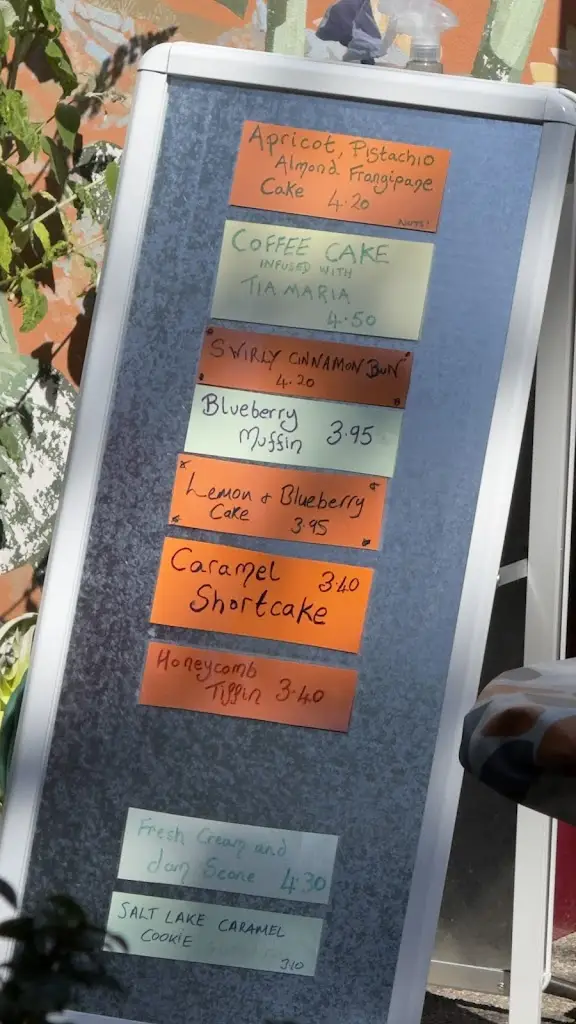 Apricot, Pistachio
Almond Frangipane
Cake 4.20
NUTS!
COFFEE CAKE
INFUSED WITH
TIA MARIA
4.50
SWIRLY CINNAMON BUN
4.20
Blueberry
Muffin 3.95
Lemon & Blueberry
Cake 3.95
Caramel 3.40
Shortcake
Honeycomb
Tiffin 3.40
Fresh Cream and
Jam Scone 4.30
SALT LAKE CARAMEL
COOKIE
3.10